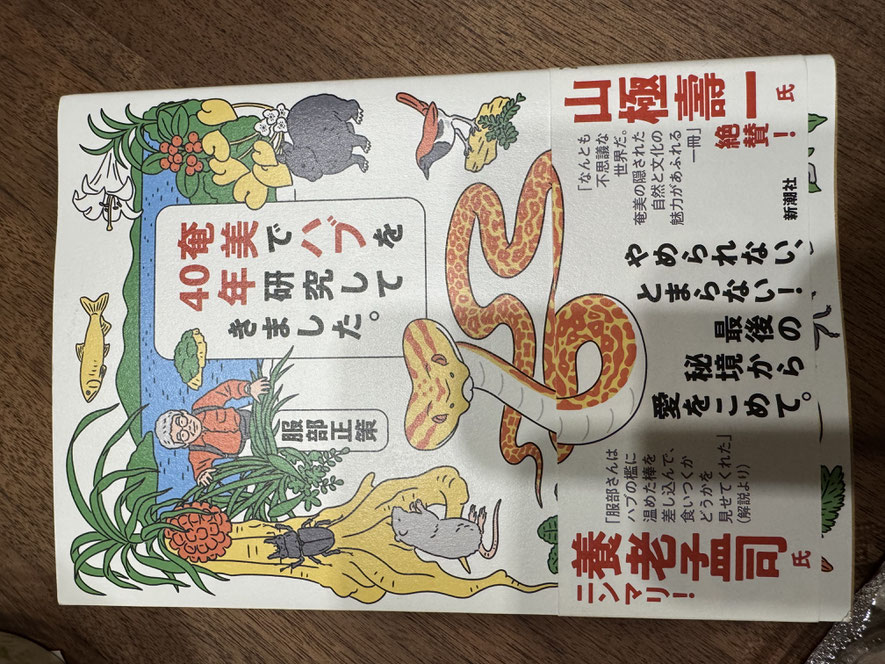 奄美でハブを
40年研究して
きました。
服部正策
山極壽一氏
絶賛！
「なんとも
不思議な
世界だ。
奄美の隠された
自然と文化の
魅力があふれる
一冊」
新潮社
やめられない、
とまらない！
最後の
秘境から
愛をこめて。
養老孟司氏
ニンマリ！
「服部さんは
ハブの檻に
温めた棒を
差し込んで、
食いつくか
どうかを
見せてくれた」
（解説より）